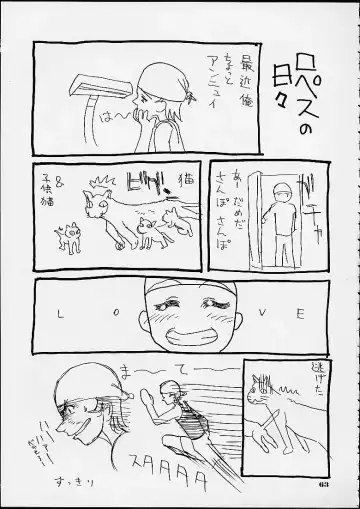 ロペスの
日々
最近俺
ちょっと
アンニュイ
はー
ガチャ
あーだめだ
さんぽさんぽ
猫
&
子供猫
LOVE
逃げた
まーてー
スタタタタ
ハー
ハァー
すっきり
63